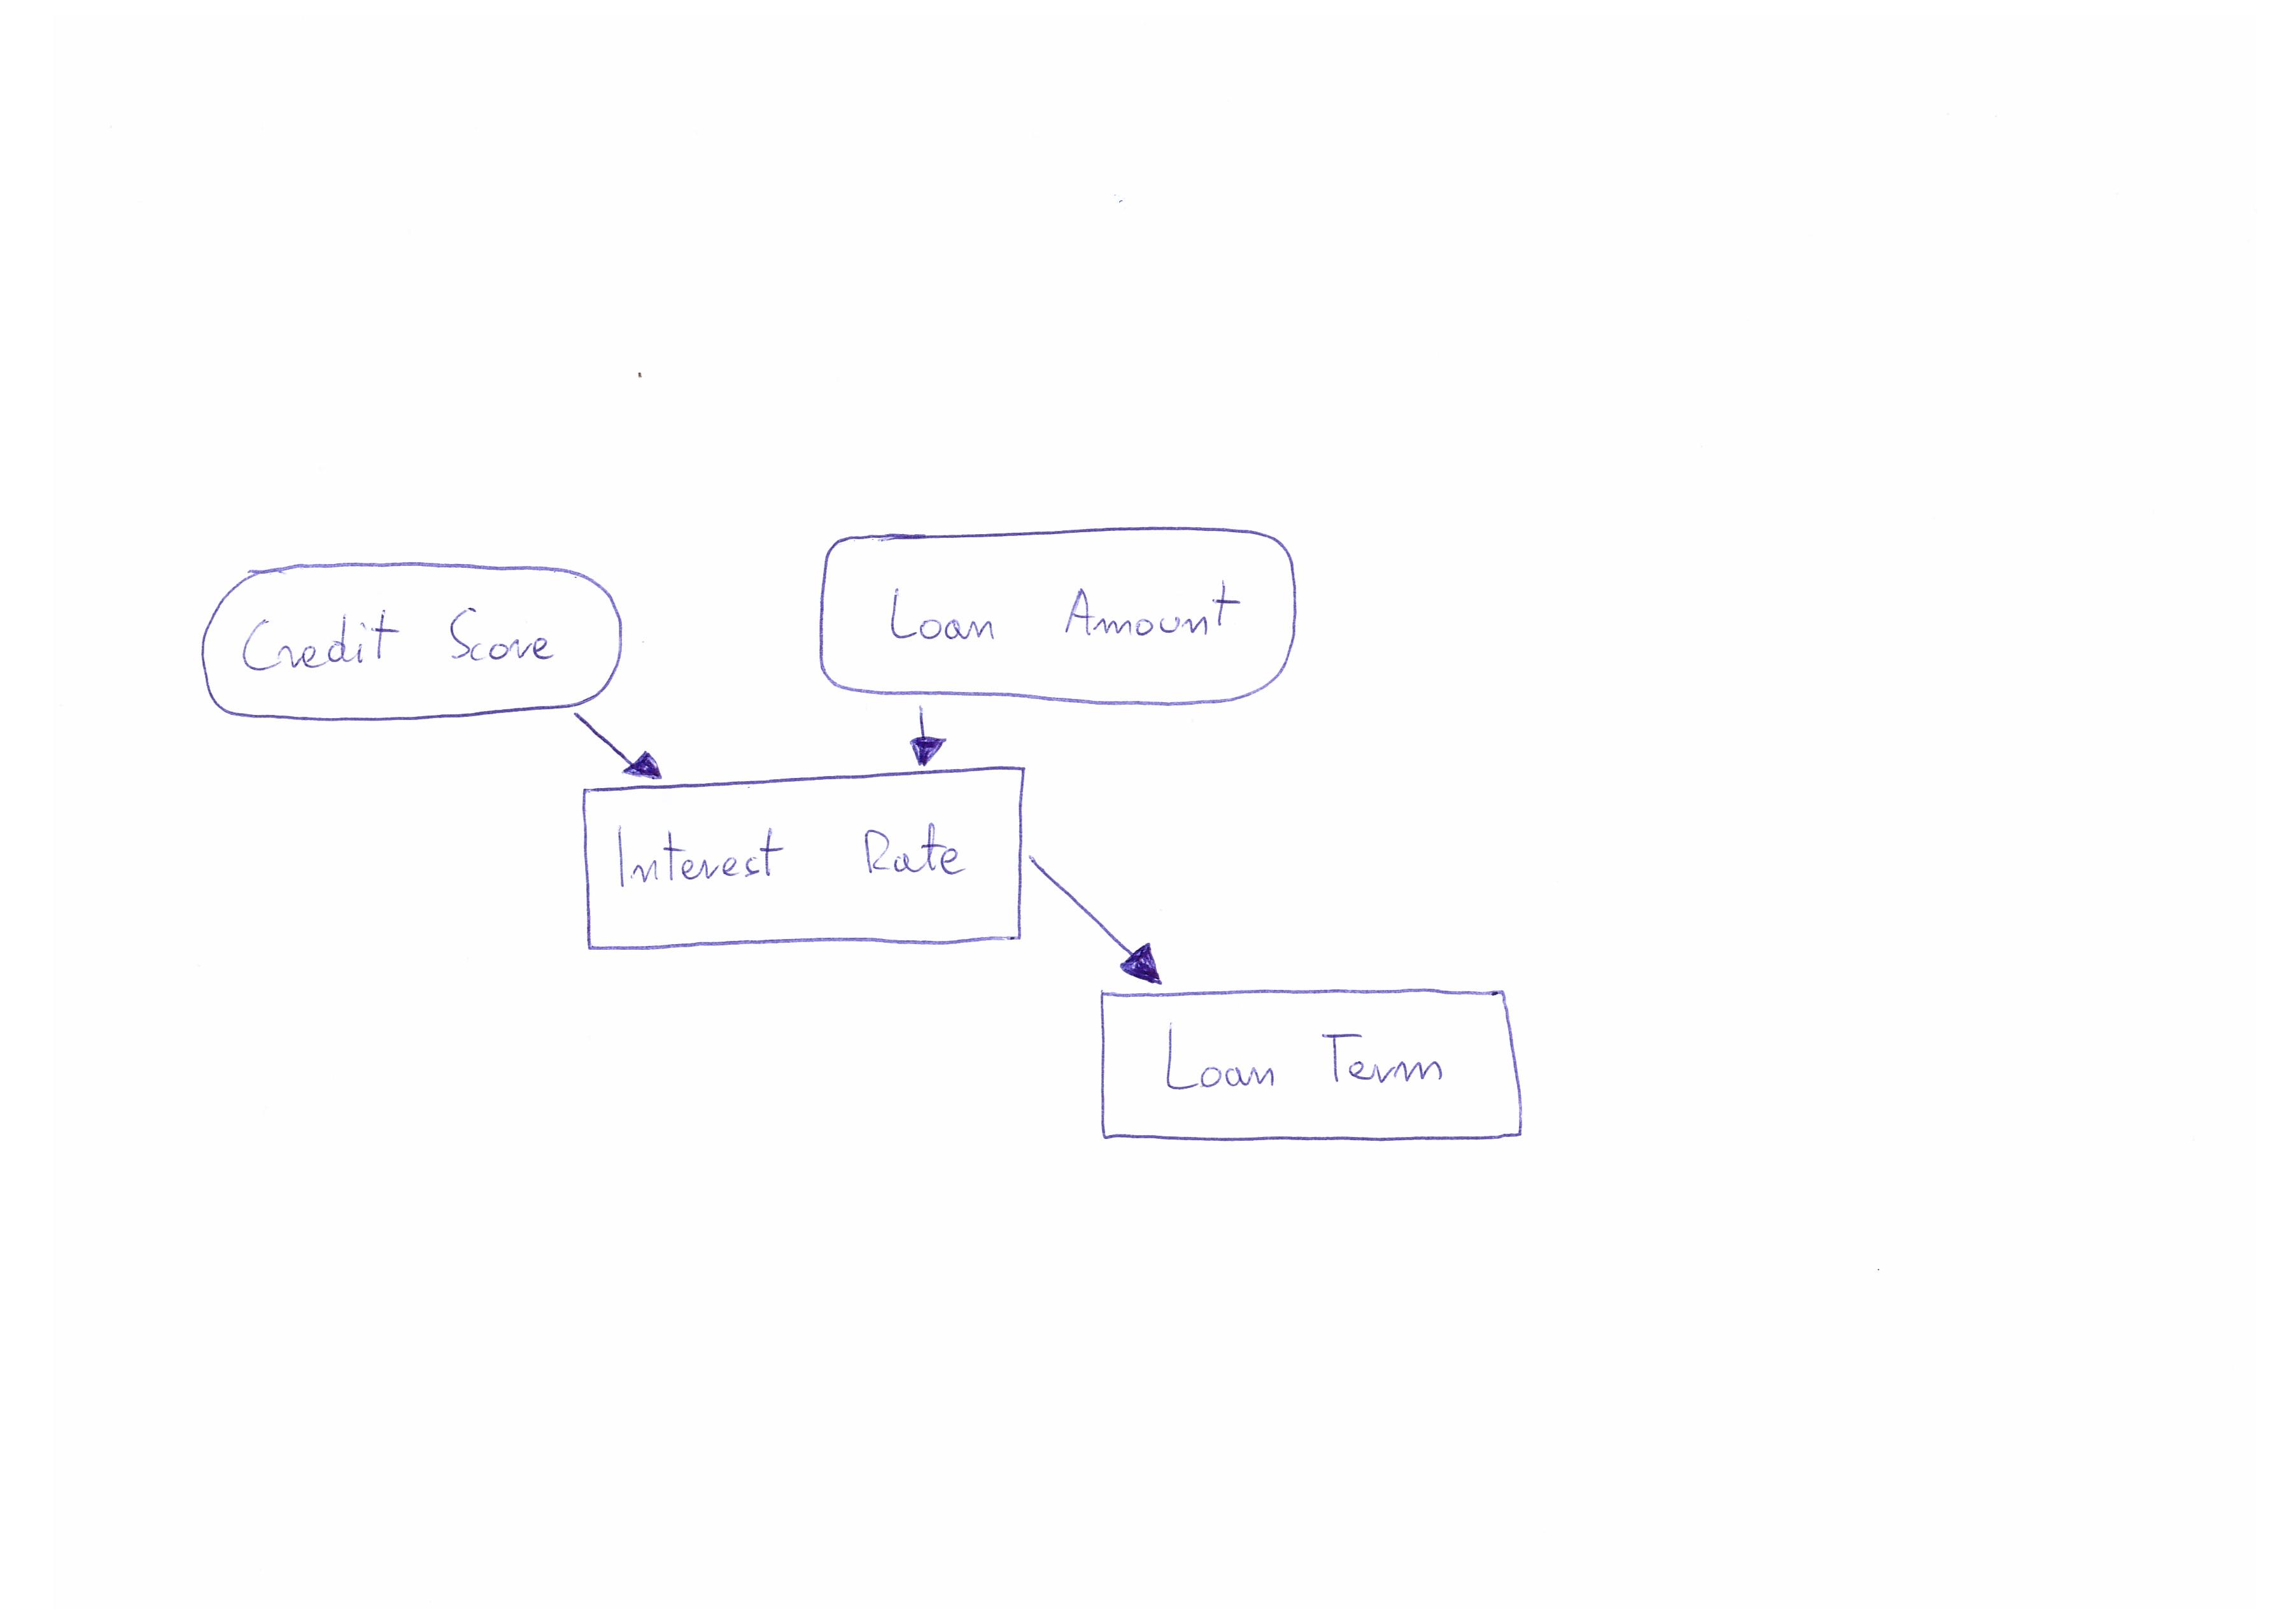 Credit Score
Loan Amount
Interest Rate
Loan Term